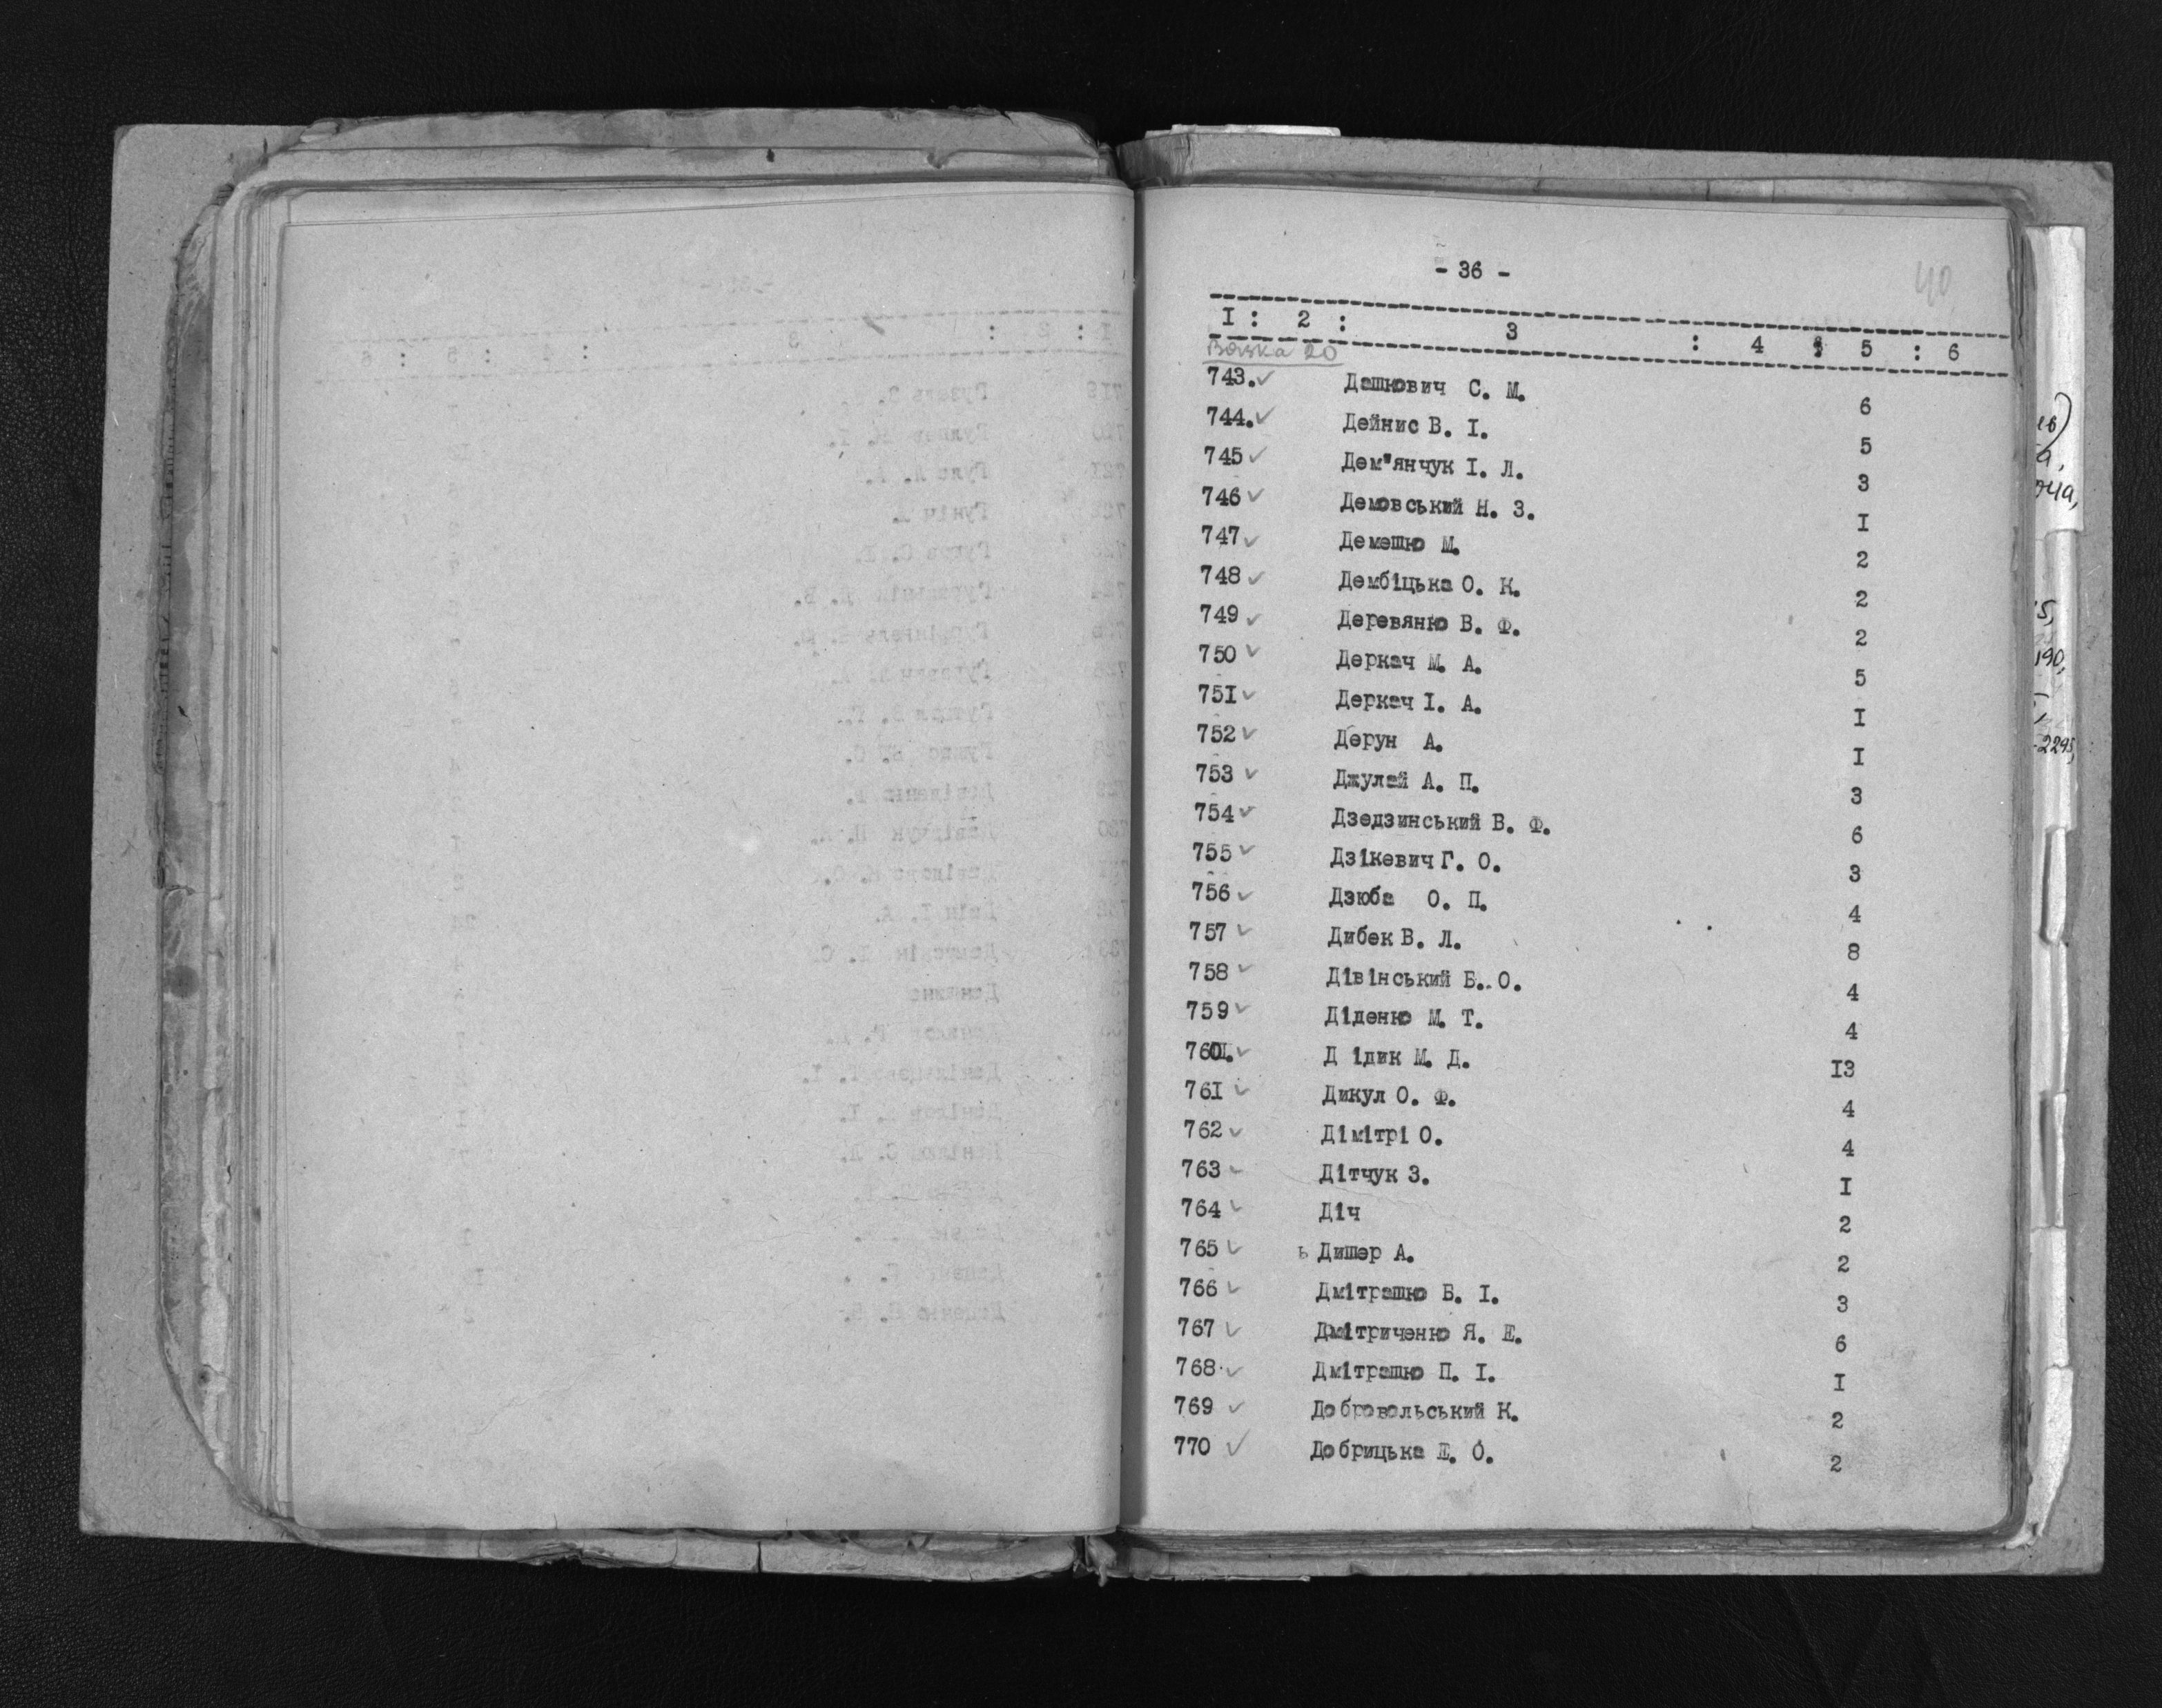 - 36 -
40
I : 2 : 3 : 4 : 5 : 6
Вязка 20
743. ✓ Дашкович С. М. 6
744. ✓ Дейнис В. І. 5
745 ✓ Дем"янчук І. Л. 3
746 ✓ Демовський Н. З. I
747 ✓ Демешко М. 2
748 ✓ Дембіцька О. К. 2
749 ✓ Деревянко В. Ф. 2
750 ✓ Деркач М. А. 5
75I ✓ Деркач І. А. I
752 ✓ Дерун А. I
753 ✓ Джулай А. П. 3
754 ✓ Дзедзинський В. Ф. 6
755 ✓ Дзікевич Г. О. 3
756 ✓ Дзюба О. П. 4
757 ✓ Дибек В. Л. 8
758 ✓ Дівінський Б. О. 4
759 ✓ Діденко М. Т. 4
760. ✓ Д ідик М. Д. I3
76I ✓ Дикул О. Ф. 4
762 ✓ Дімітрі О. 4
763 ✓ Дітчук З. I
764 ✓ Діч 2
765 ✓ ь Дишер А. 2
766 ✓ Дмітрашко Б. І. 3
767 ✓ Дмітриченко Я. Е. 6
768 ✓ Дмітрашко П. І. I
769 ✓ Добровольський К. 2
770 ✓ Добрицька Е. О. 2